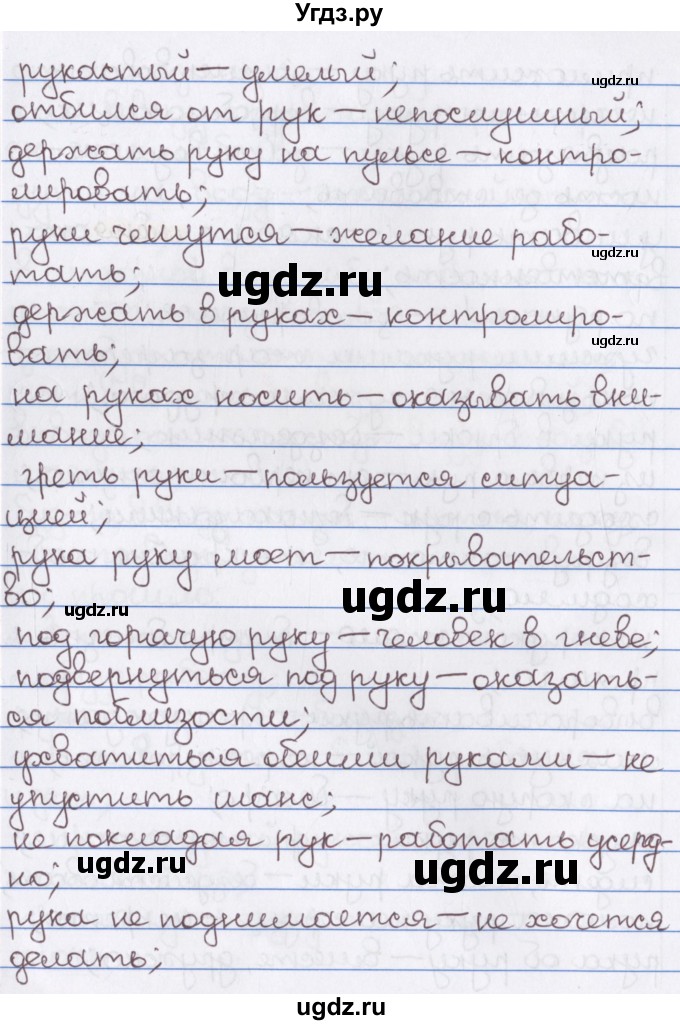 Угдз.ру
рукастый — умелый;
ugdz.ru
отбился от рук — непослушный;
держать руку на пульсе — контро-
ugdz.ru
лировать;
руки чешутся — желание рабо-
тать;
ugdz.ru
держать в руках — контролиро-
вать;
на руках носить — оказывать вни-
мание;
греть руки — пользуется ситуа-
цией;
рука руку моет — покрывательст-
во;
ugdz.ru
ugdz.ru
под горячую руку — человек в гневе;
подвернуться под руку — оказать-
ся поблизости;
ухватиться обеими руками — не
упустить шанс;
не покладая рук — работать усерд-
но;
ugdz.ru
ugdz.ru
рука не поднимается — не хочется
делать;
ugdz.ru